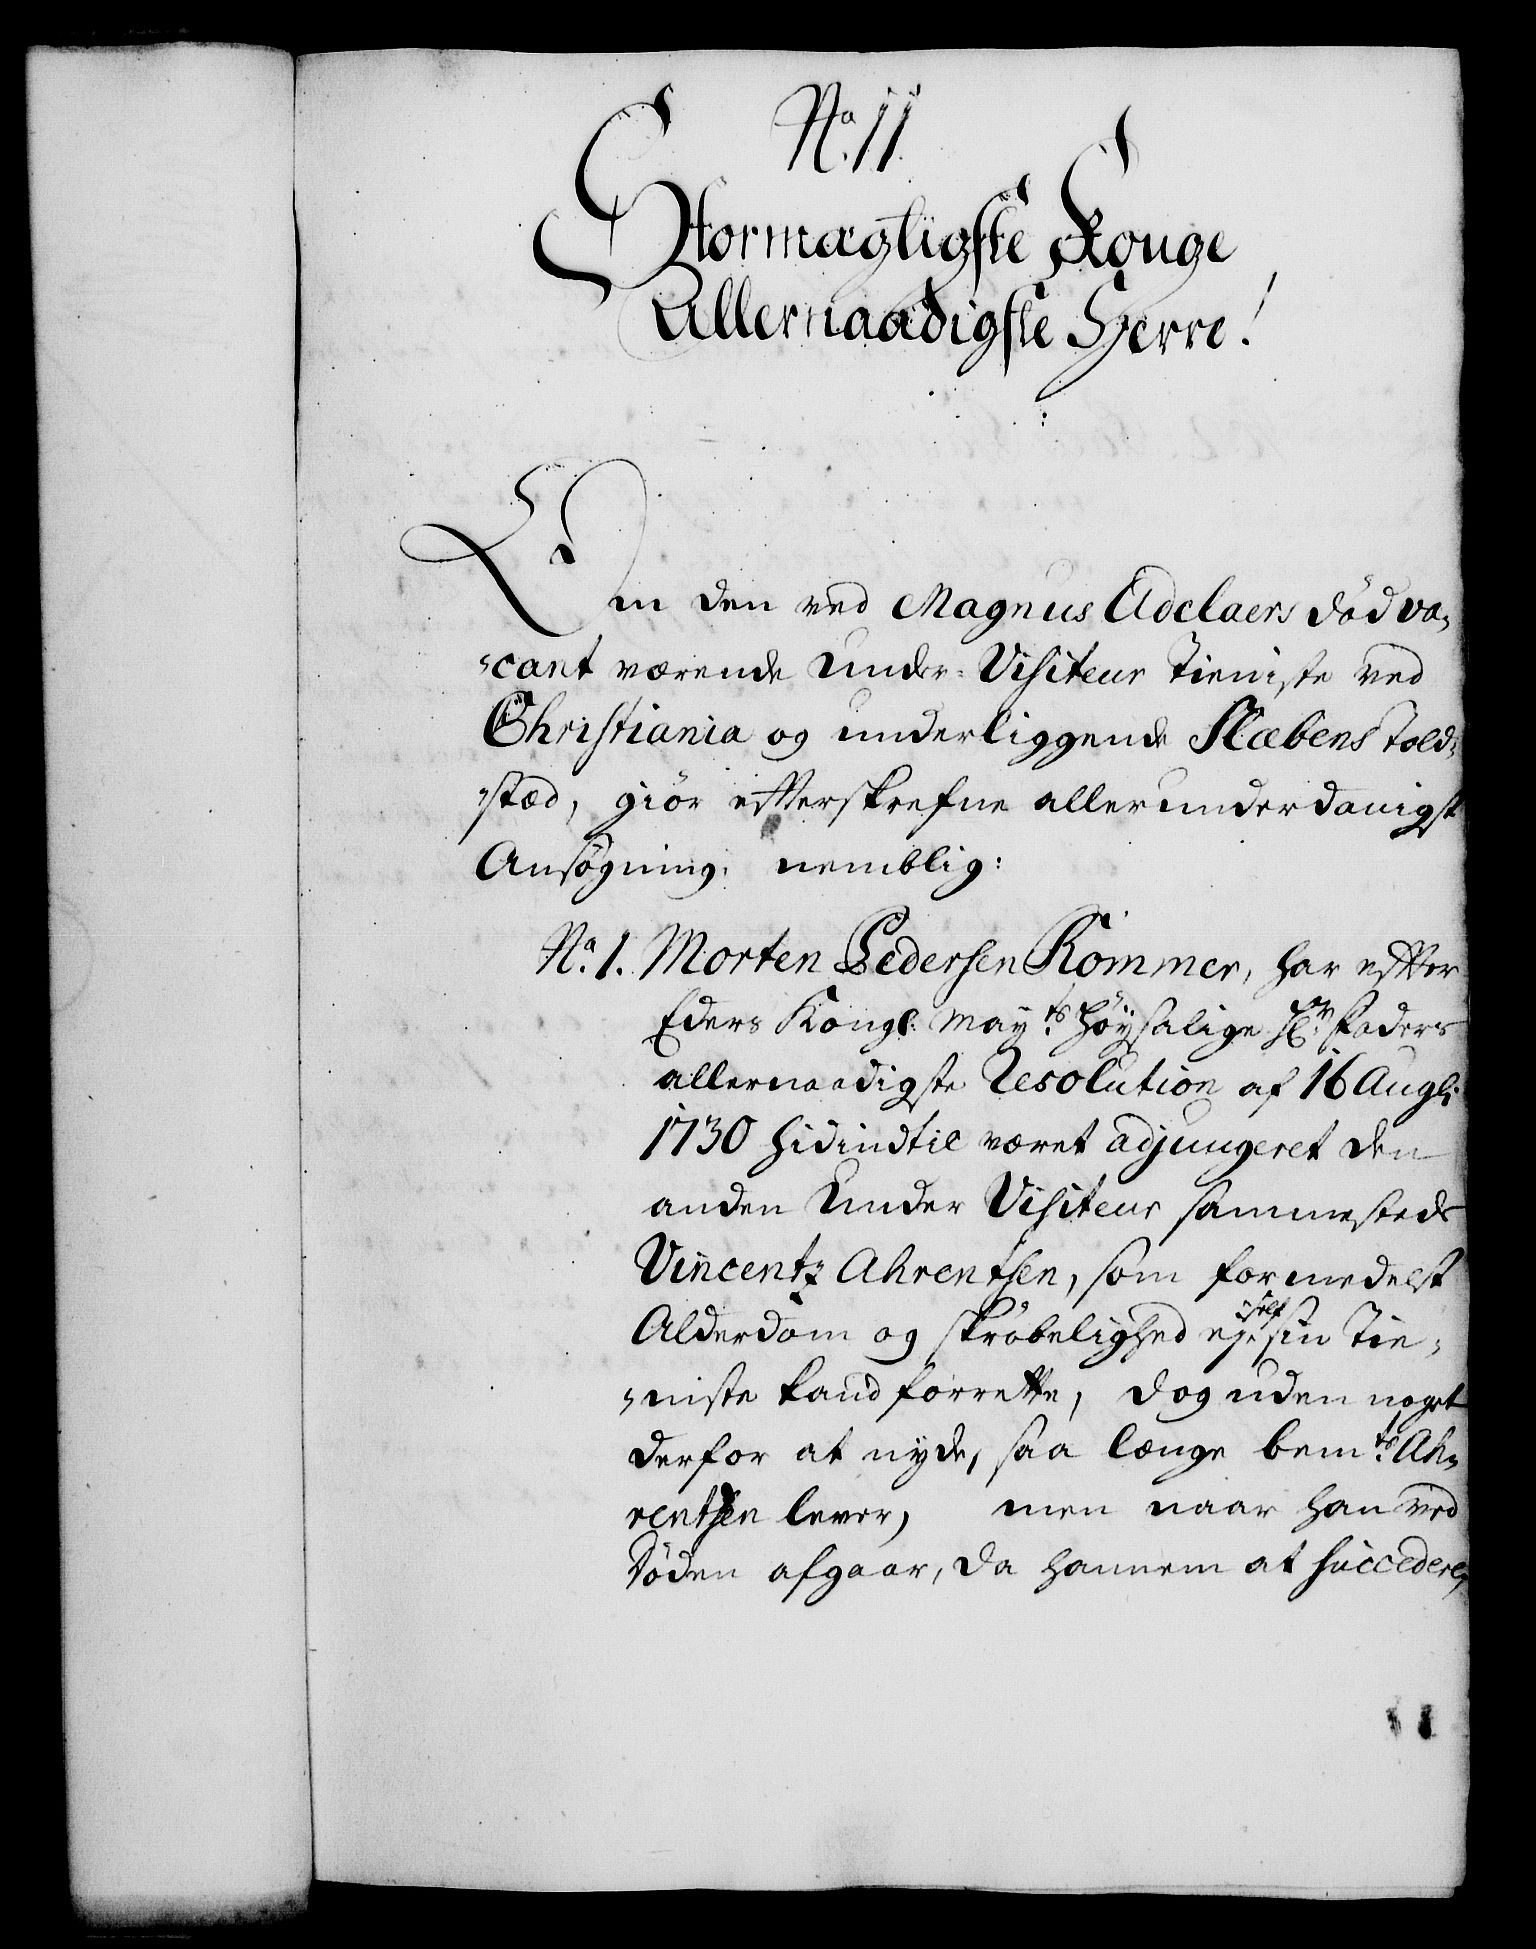 No. 11.
Stormægtigste Konge
Allernaadigste Herre!
Om den ved Magnus Adelaers Død va-
-cant værende Under-Visiteur Tieniste ved
Christiania og underliggende Slæbens Told-
-stæd, giør efterskrefne allerunderdanigst
Ansøgning: nemblig:
No. 1. Morten Pedersen Kommer, har efter
Eders Kongl: Mayts Høysalige Hr. Faders
allernaadigste Resolution af 16 Augti
1730 hidindtil været adjungeret den
anden Under Visiteur sammesteds
Vincentz Ahrentsen, som formedelst
Alderdom og skrøbelighed ej self sin Tie-
-niste kand forrette, dog uden noget
derfor at nyde, saa længe bemte Ah-
rentsen lever, men naar han ved
Døden afgaar, da hannem at succedere,